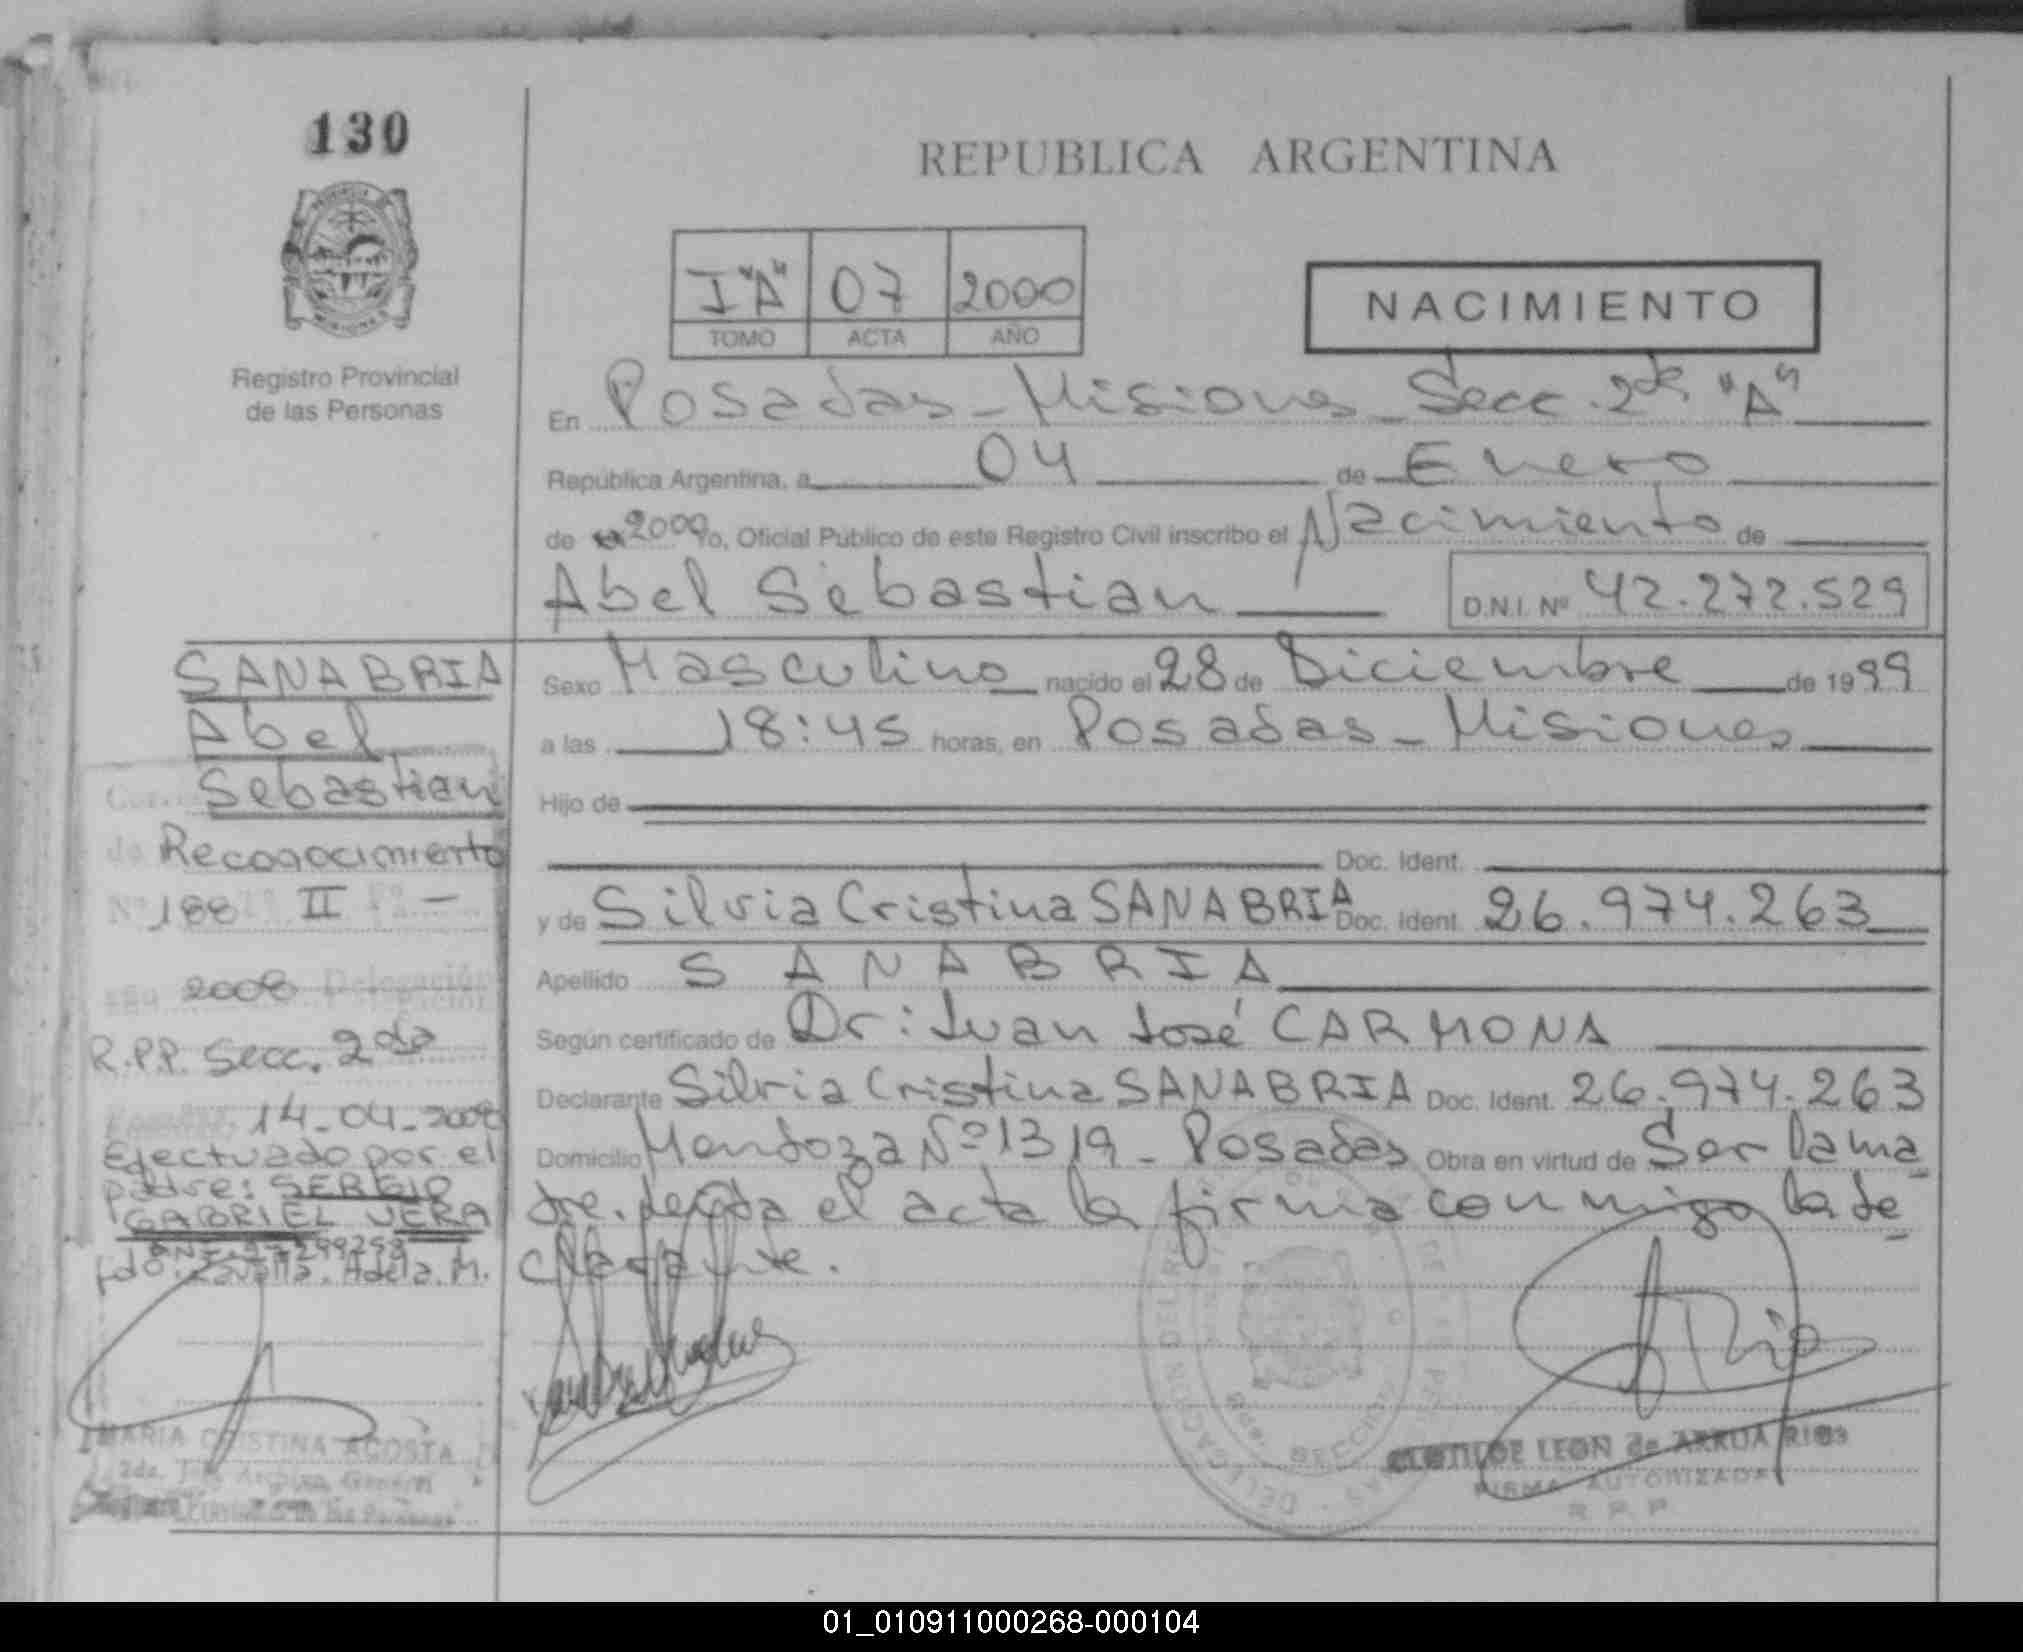 130
REPUBLICA ARGENTINA
I "A" 07 2000
TOMO ACTA AÑO
NACIMIENTO
Registro Provincial
de las Personas
En Posadas - Misiones - Secc. 2da "A"
República Argentina, a 04 de Enero
de 2000 yo, Oficial Público de este Registro Civil inscribo el Nacimiento de
Abel Sebastian D.N.I. Nº 42.272.529
Sexo Masculino nacido el 28 de Diciembre de 1999
a las 18:45 horas, en Posadas - Misiones
Hijo de
Doc. Ident.
y de Silvia Cristina SANABRIA Doc. Ident. 26.974.263
Apellido SANABRIA
Según certificado de Dr: Juan José CARMONA
Declarante Silvia Cristina SANABRIA Doc. Ident. 26.974.263
Domicilio Mendoza Nº 1319 - Posadas Obra en virtud de Ser la ma
dre. Leída el acta la firma conmigo la de
clarante.
SANABRIA
Abel
Sebastian
de Reconocimiento
Nº 188 Tº II Fº -
año 2008 Delegación
R.P.P. Secc. 2da
14-04-2008
Efectuado por el
padre: SERGIO
GABRIEL VERA
fdo: Zavalla. Adela. M.
MARIA CRISTINA ACOSTA
2da. Jefe Archivo General
de las Personas
CLOTILDE LEON de ARRUA RIOS
FIRMA AUTORIZADA
R. P. P.
01_010911000268-000104